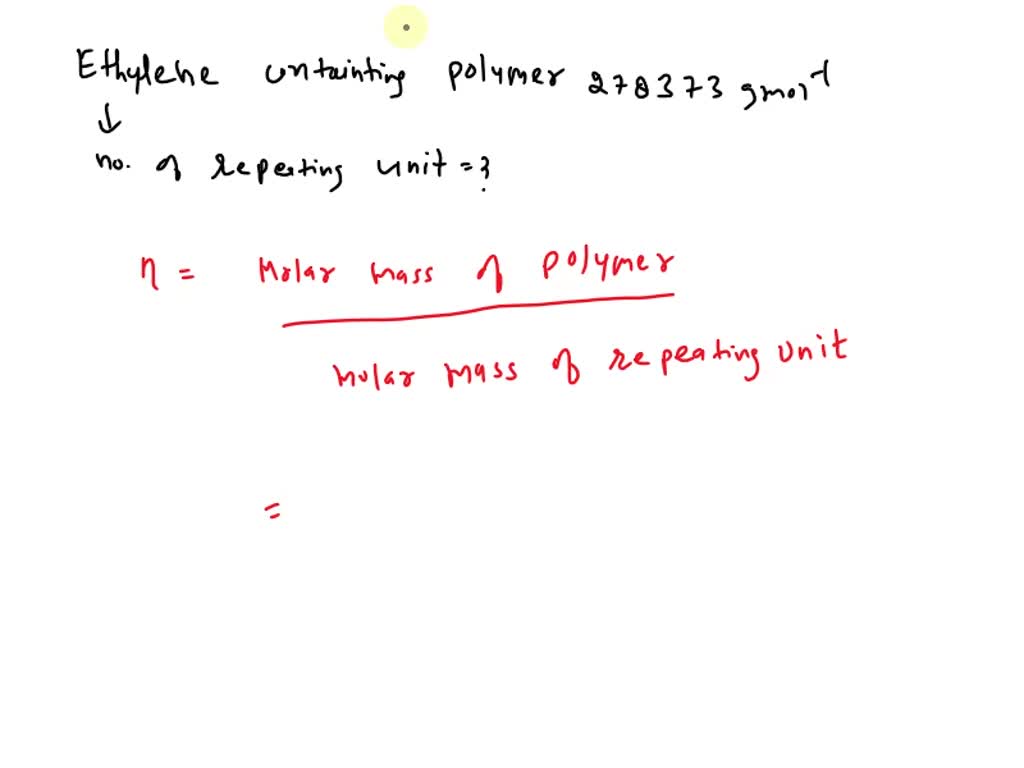 Ethylene containting polymer 278373 gmol⁻¹
↓
no. of repeating unit = ?
η = Molar mass of polymer
molar mass of repeating unit
=